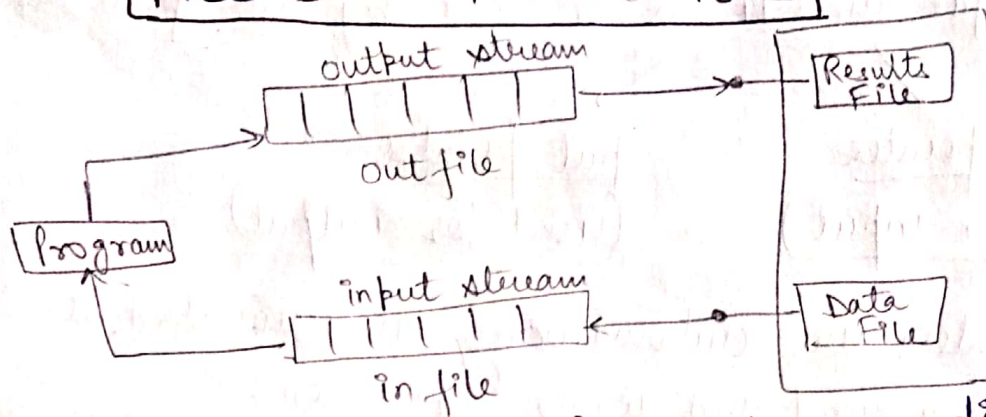 output stream
Results
File
outfile
Program
input stream
Data
File
in file